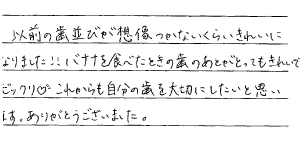 以前の歯並びが想像つかないくらいきれいに
なりました!!バナナを食べたときの歯のあとがとってもきれいで
ビックリ♡これからも自分の歯を大切にしたいと思い
ます。ありがとうございました。